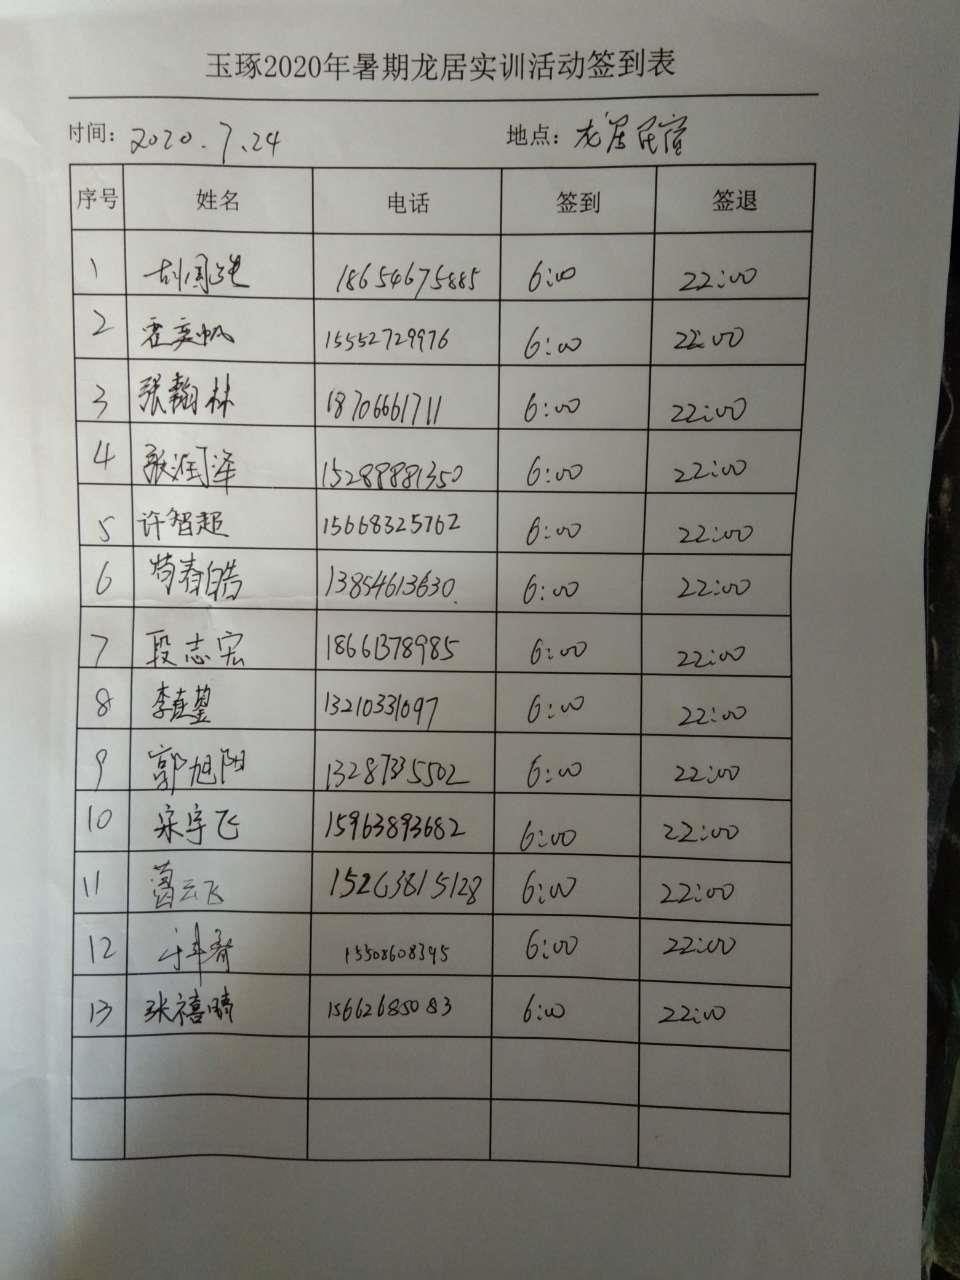 玉琢2020年暑期龙居实训活动签到表
时间：2020.7.24 地点：龙居民宿
序号 姓名 电话 签到 签退
1 胡国强 18654675885 6:00 22:00
2 霍奕帆 15552729976 6:00 22:00
3 张翰林 18706661711 6:00 22:00
4 张润泽 15289881350 6:00 22:00
5 许智超 15668325762 6:00 22:00
6 苟春皓 13854613630 6:00 22:00
7 段志宏 18661378985 6:00 22:00
8 李 13210331097 6:00 22:00
9 郭旭阳 13287335502 6:00 22:00
10 宋宇飞 15963893682 6:00 22:00
11 葛云飞 15263815128 6:00 22:00
12 15508608395 6:00 22:00
13 张禧晴 15662685083 6:00 22:00